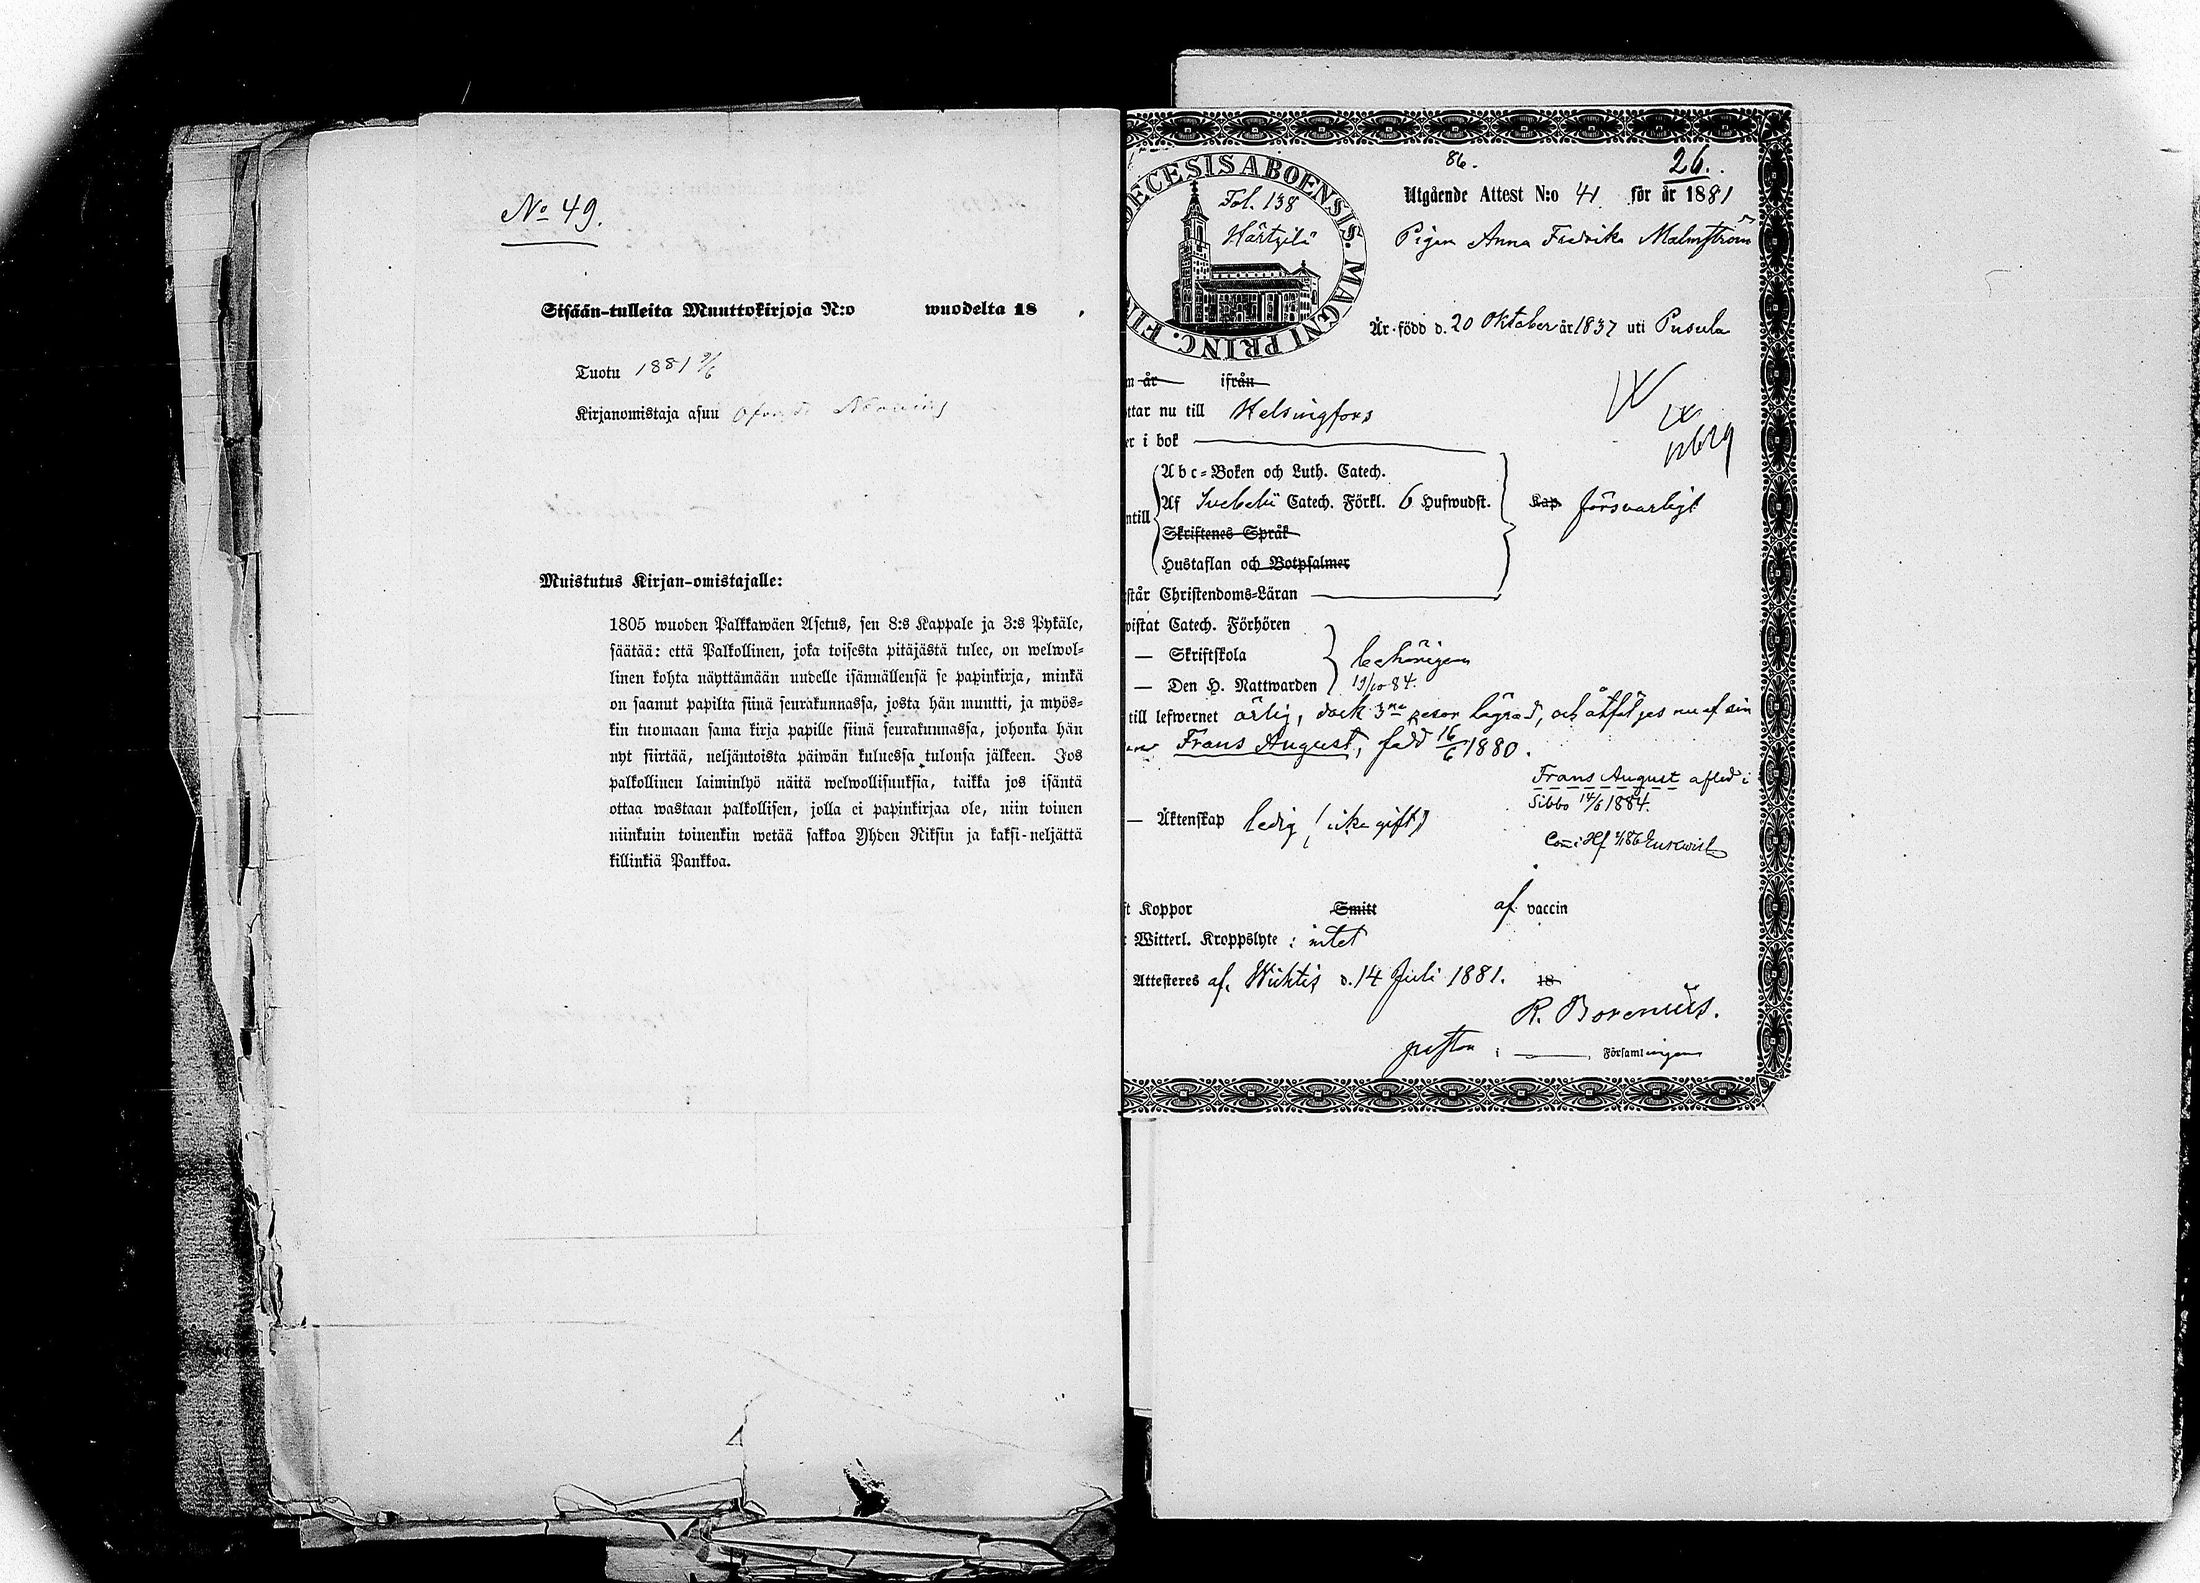 No 49.
Sisään-tulleita Muuttokirjoja N:o wuodelta 18 ,
Tuotu 1881 9/6
Kirjanomistaja asuu
Muistutus Kirjan-omistajalle:
1805 wuoden Palkkawäen Asetus, sen 8:s Kappale ja 3:s Pykäle,
säätää: että Palkollinen, joka toisesta pitäjästä tulee, on welwol-
linen kohta näyttämään uudelle isännällensä se papinkirja, minkä
on saanut papilta siinä seurakunnassa, josta hän muutti, ja myös-
kin tuomaan sama kirja papille siinä seurakunnassa, johonka hän
nyt siirtää, neljäntoista päiwän kuluessa tulonsa jälkeen. Jos
palkollinen laiminlyö näitä welwollisuuksia, taikka jos isäntä
ottaa wastaan palkollisen, jolla ei papinkirjaa ole, niin toinen
niinkuin toinenkin wetää sakkoa Yhden Riksin ja kaksi-neljättä
killinkiä Pankkoa.
86. 26.
DECESIS ABOENSIS. MAGNI PRINC. FI
Fol. 138
Härtsilä
Utgående Attest N:o 41. för år 1881
Pigan Anna Fredrika Malmström
Är född d. 20 Oktober år 1837 uti Pusula
m år ifrån
ttar nu till Helsingfors
er i bok
Abc-Boken och Luth. Catech.
ntill Af Svebelii Catech. Förkl. 6 Hufwudst. Kap. försvarligt
Skriftenes Språk
Hustaflan och Botpsalmer
står Christendoms-Läran
vistat Catech. Förhören
— Skriftskola behörigen
— Den H. Nattwarden 19/10 84.
till lefwernet ärlig, dock 3ne resor lägrad, och åtföljes nu af sin
Frans August, född 16/6 1880.
Frans August afled i
Sibbo 14/6 1884.
— Äktenskap ledig (icke gift)
t Koppor Smitt af vaccin
: Witterl. Kroppslyte : intet
Attesteres af, Wichtis d. 14 Juli 1881. 18
R. Borenius.
pastor i Församlingen